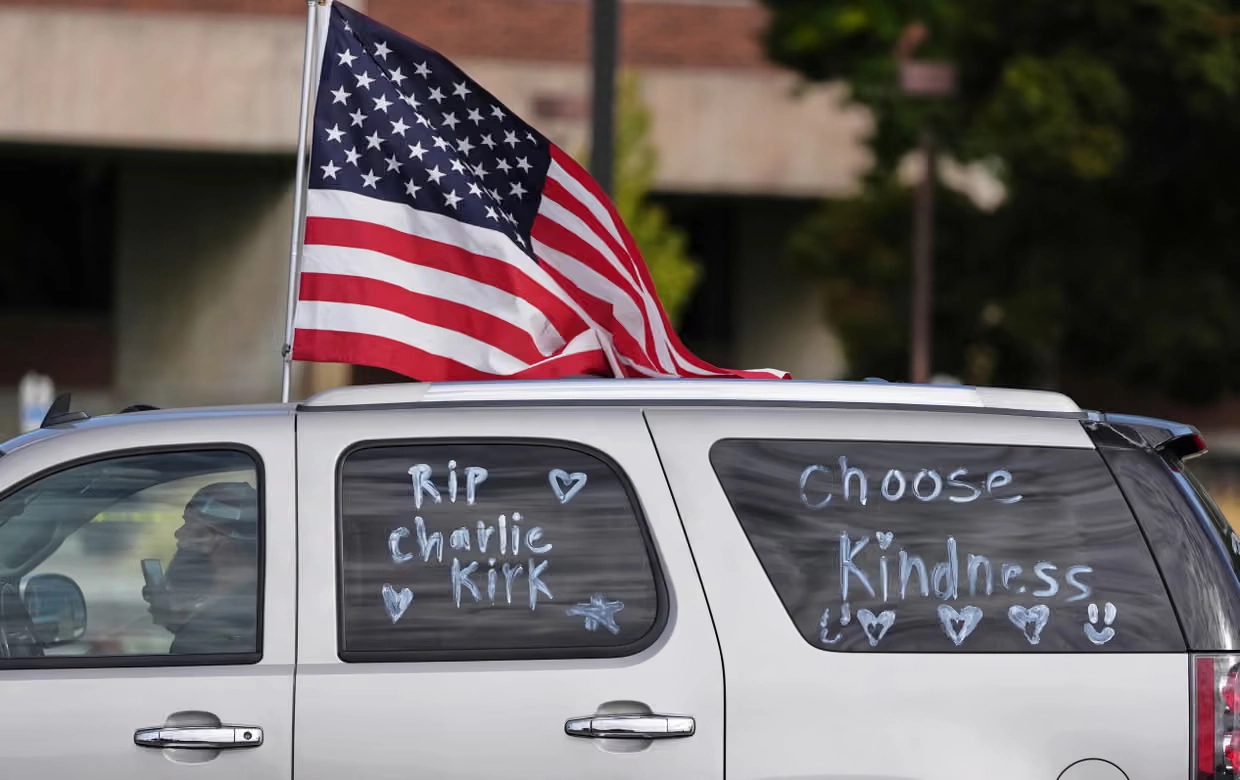 RiP
charlie
KirK
choose
Kindness